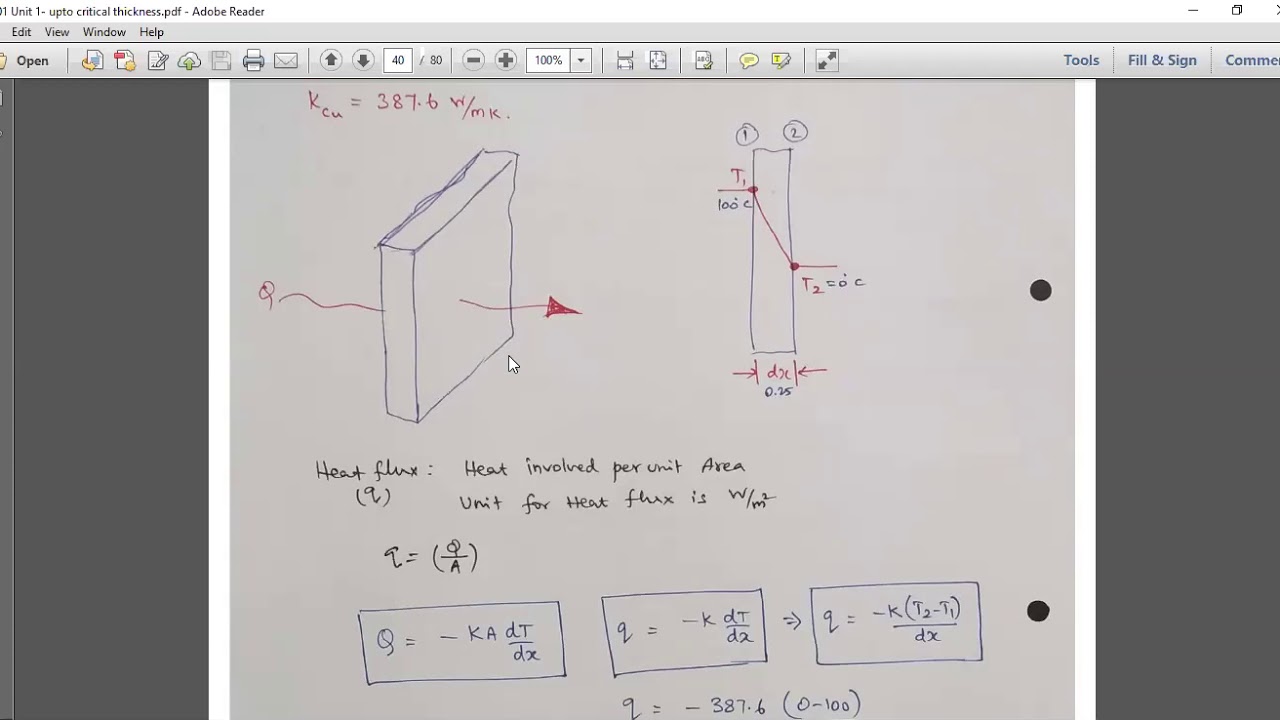 01 Unit 1- upto critical thickness.pdf - Adobe Reader
Edit View Window Help
Open 40 / 80 100% Tools Fill & Sign Comme
Kcu = 387.6 W/mK.
① ②
T1
100°C
T2 = 0°C
Q
dx
0.25
Heat flux : Heat involved per unit Area
(q) Unit for Heat flux is W/m²
q = (Q/A)
Q = - KA dT/dx
q = -K dT/dx ⇒ q = -K(T2-T1)/dx
q = - 387.6 (0-100)